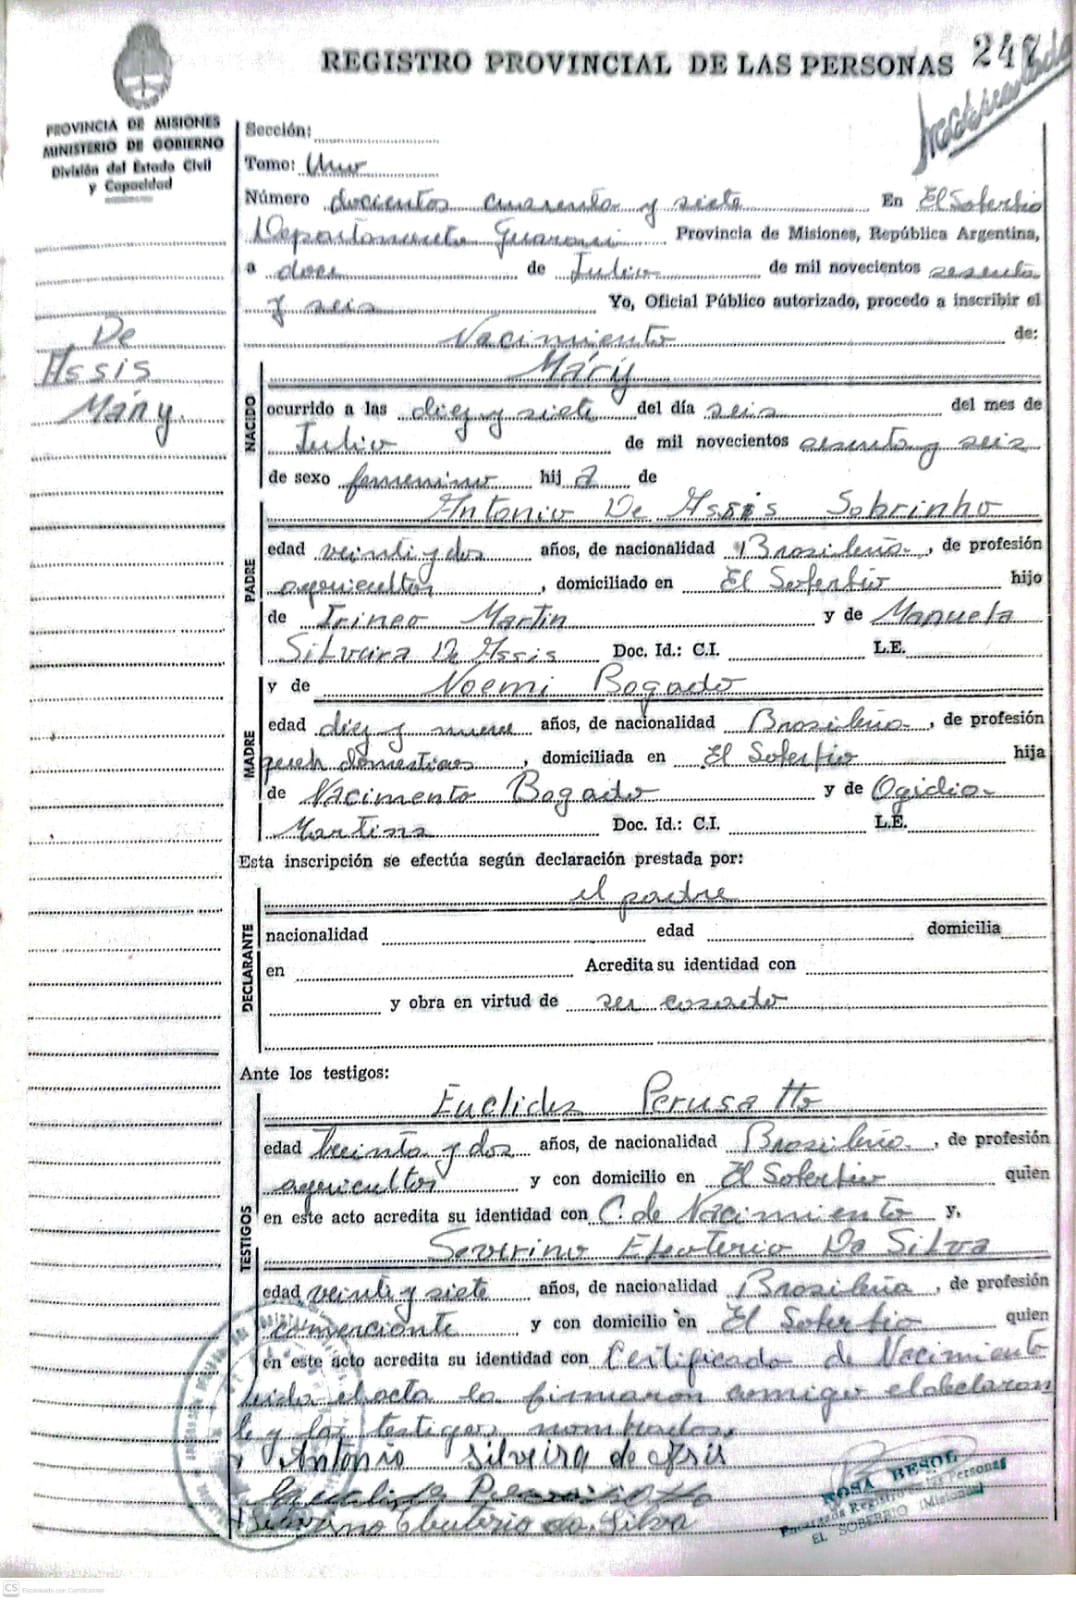 REGISTRO PROVINCIAL DE LAS PERSONAS 247
PROVINCIA DE MISIONES
MINISTERIO DE GOBIERNO
División del Estado Civil
y Capacidad
De
Assis
Mány.
Sección:
Tomo: Uno
Número docientos cuarenta y siete En El Soberbio
Departamento Guarani Provincia de Misiones, República Argentina,
a doce de Julio de mil novecientos sesenta
y seis Yo, Oficial Público autorizado, procedo a inscribir el
Nacimiento de:
NACIDO
Máriy
ocurrido a las diez y siete del día seis del mes de
Julio de mil novecientos sesenta y seis
de sexo femenino hij a de
PADRE
Antonio De Assis Sobrinho
edad veinti y dos años, de nacionalidad Brasileña, de profesión
agricultor, domiciliado en El Soberbio hijo
de Irineo Martin y de Manuela
Silveira De Assis Doc. Id.: C.I. L.E.
MADRE
y de Noemi Bogado
edad diez y nueve años, de nacionalidad Brasileña, de profesión
domesticos, domiciliada en El Soberbio hija
de Nacimento Bogado y de Ogidia
Martins Doc. Id.: C.I. L.E.
Esta inscripción se efectúa según declaración prestada por:
DECLARANTE
el padre
nacionalidad edad domicilia
en Acredita su identidad con
y obra en virtud de ser
Ante los testigos:
TESTIGOS
Euclides Perusatto
edad treinta y dos años, de nacionalidad Brasileña, de profesión
agricultor y con domicilio en El Soberbio quien
en este acto acredita su identidad con C. de Nacimiento y,
Severino Eleoterio Da Silva
edad veinti y siete años, de nacionalidad Brasileña, de profesión
comerciante y con domicilio en El Soberbio quien
en este acto acredita su identidad con Certificado de Nacimiento
leida el acta la firmaron comigo el declaran
te y los testigos nombrados.
Antônio Silveira de Assis
Eleuterio da Silva
ROSA BESOL
Encargada Registro de las Personas
EL SOBERBIO (Misiones)
CS Escaneado con CamScanner